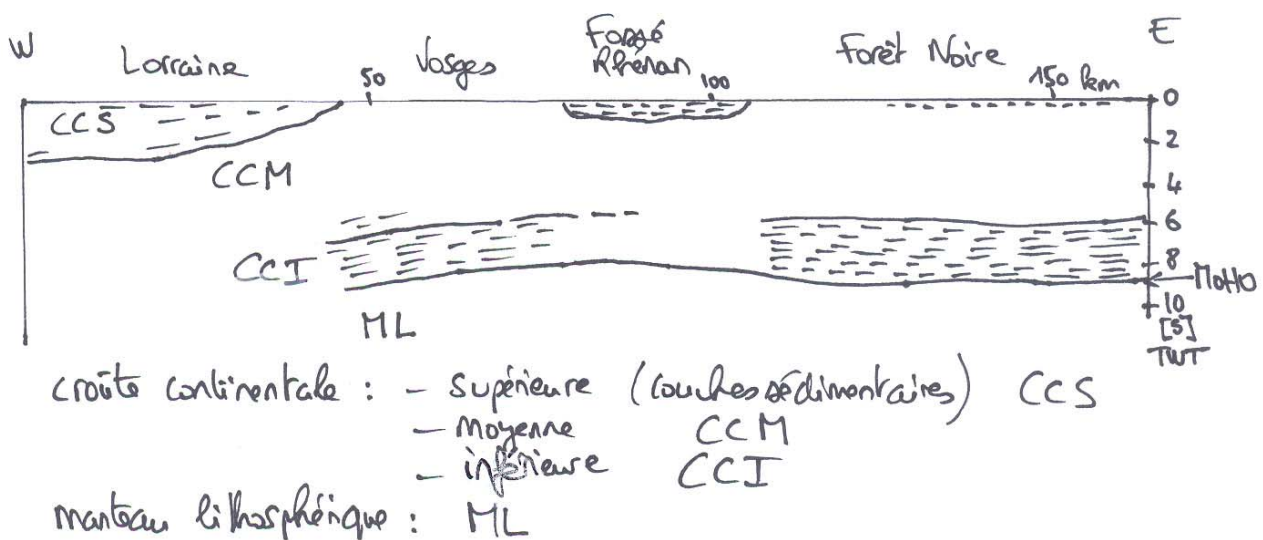 W Lorraine 50 Vosges Fossé Rhénan 100 Forêt Noire 150 km E
CCS
CCM
CCI
ML
0
2
4
6
8
MOHO
10
[S]
TWT
croûte continentale : - supérieure (couches sédimentaires) CCS
- moyenne CCM
- inférieure CCI
manteau lithosphérique : ML